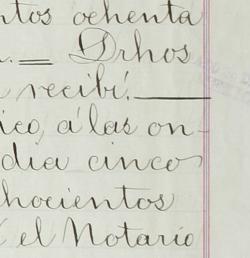 ntos ochenta
. = Drhos
recibí.—
ico, á las on-
dia cinco
chocientos
el Notario